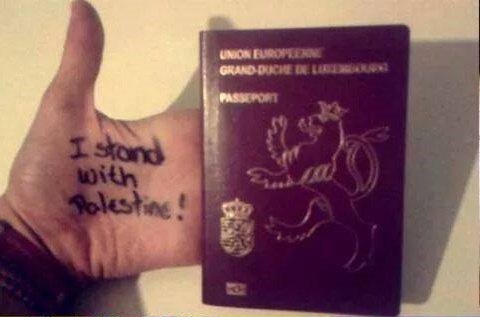 I stand
with
Palestine!
UNION EUROPÉENNE
GRAND-DUCHÉ DE LUXEMBOURG
PASSEPORT